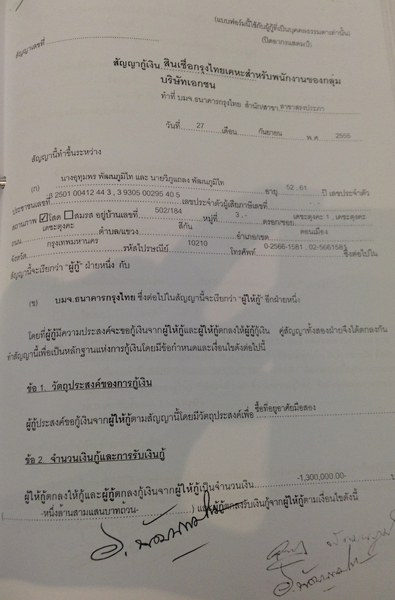 (แบบฟอร์มนี้ใช้กับผู้กู้ที่เป็นบุคคลธรรมดาเท่านั้น)
(ปิดอากรแสตมป์)
สัญญาเลขที่
สัญญากู้เงิน สินเชื่อกรุงไทยเคหะสำหรับพนักงานของกลุ่ม
บริษัทเอกชน
ทำที่ บมจ.ธนาคารกรุงไทย สำนัก/สาขา สาขาสรงประภา
วันที่ 27 เดือน กันยายน พ.ศ. 2555
สัญญานี้ทำขึ้นระหว่าง
(ก) นางยุทุมพร พัฒนภูมิไท และ นายวิภูแถลง พัฒนภูมิไท อายุ 52 , 61 ปี เลขประจำตัว
ประชาชนเลขที่ 3 2501 00412 44 3 , 3 9305 00295 40 5 เลขประจำตัวผู้เสียภาษีเลขที่
สถานภาพ โสด สมรส อยู่บ้านเลขที่ 502/184 หมู่ที่ 3 , - ตรอก/ซอย เดชะตุงคะ 1 , เดชะตุงคะ
ถนน เดชะตุงคะ ตำบล/แขวง สีกัน อำเภอ/เขต ดอนเมือง
จังหวัด กรุงเทพมหานคร รหัสไปรษณีย์ 10210 โทรศัพท์ 0-2566-1581 , 02-5661581 ซึ่งต่อไปใน
สัญญานี้จะเรียกว่า "ผู้กู้" ฝ่ายหนึ่ง กับ
(ข) บมจ.ธนาคารกรุงไทย ซึ่งต่อไปในสัญญานี้จะเรียกว่า "ผู้ให้กู้" อีกฝ่ายหนึ่ง
โดยที่ผู้กู้มีความประสงค์จะขอกู้เงินจากผู้ให้กู้และผู้ให้กู้ตกลงให้ผู้กู้กู้เงิน คู่สัญญาทั้งสองฝ่ายจึงได้ตกลงกัน
ทำสัญญานี้เพื่อเป็นหลักฐานแห่งการกู้เงินโดยมีข้อกำหนดและเงื่อนไขดังต่อไปนี้
ข้อ 1. วัตถุประสงค์ของการกู้เงิน
ผู้กู้ประสงค์จะขอกู้เงินจากผู้ให้กู้ตามสัญญานี้โดยมีวัตถุประสงค์เพื่อ ซื้อที่อยู่อาศัยมือสอง
ข้อ 2. จำนวนเงินกู้และการรับเงินกู้
ผู้ให้กู้ตกลงให้กู้และผู้กู้ตกลงกู้เงินจากผู้ให้กู้เป็นจำนวนเงิน -1,300,000.-
( -หนึ่งล้านสามแสนบาทถวน- ) และผู้กู้ตกลงรับเงินกู้จากผู้ให้กู้ตามเงื่อนไขดังนี้